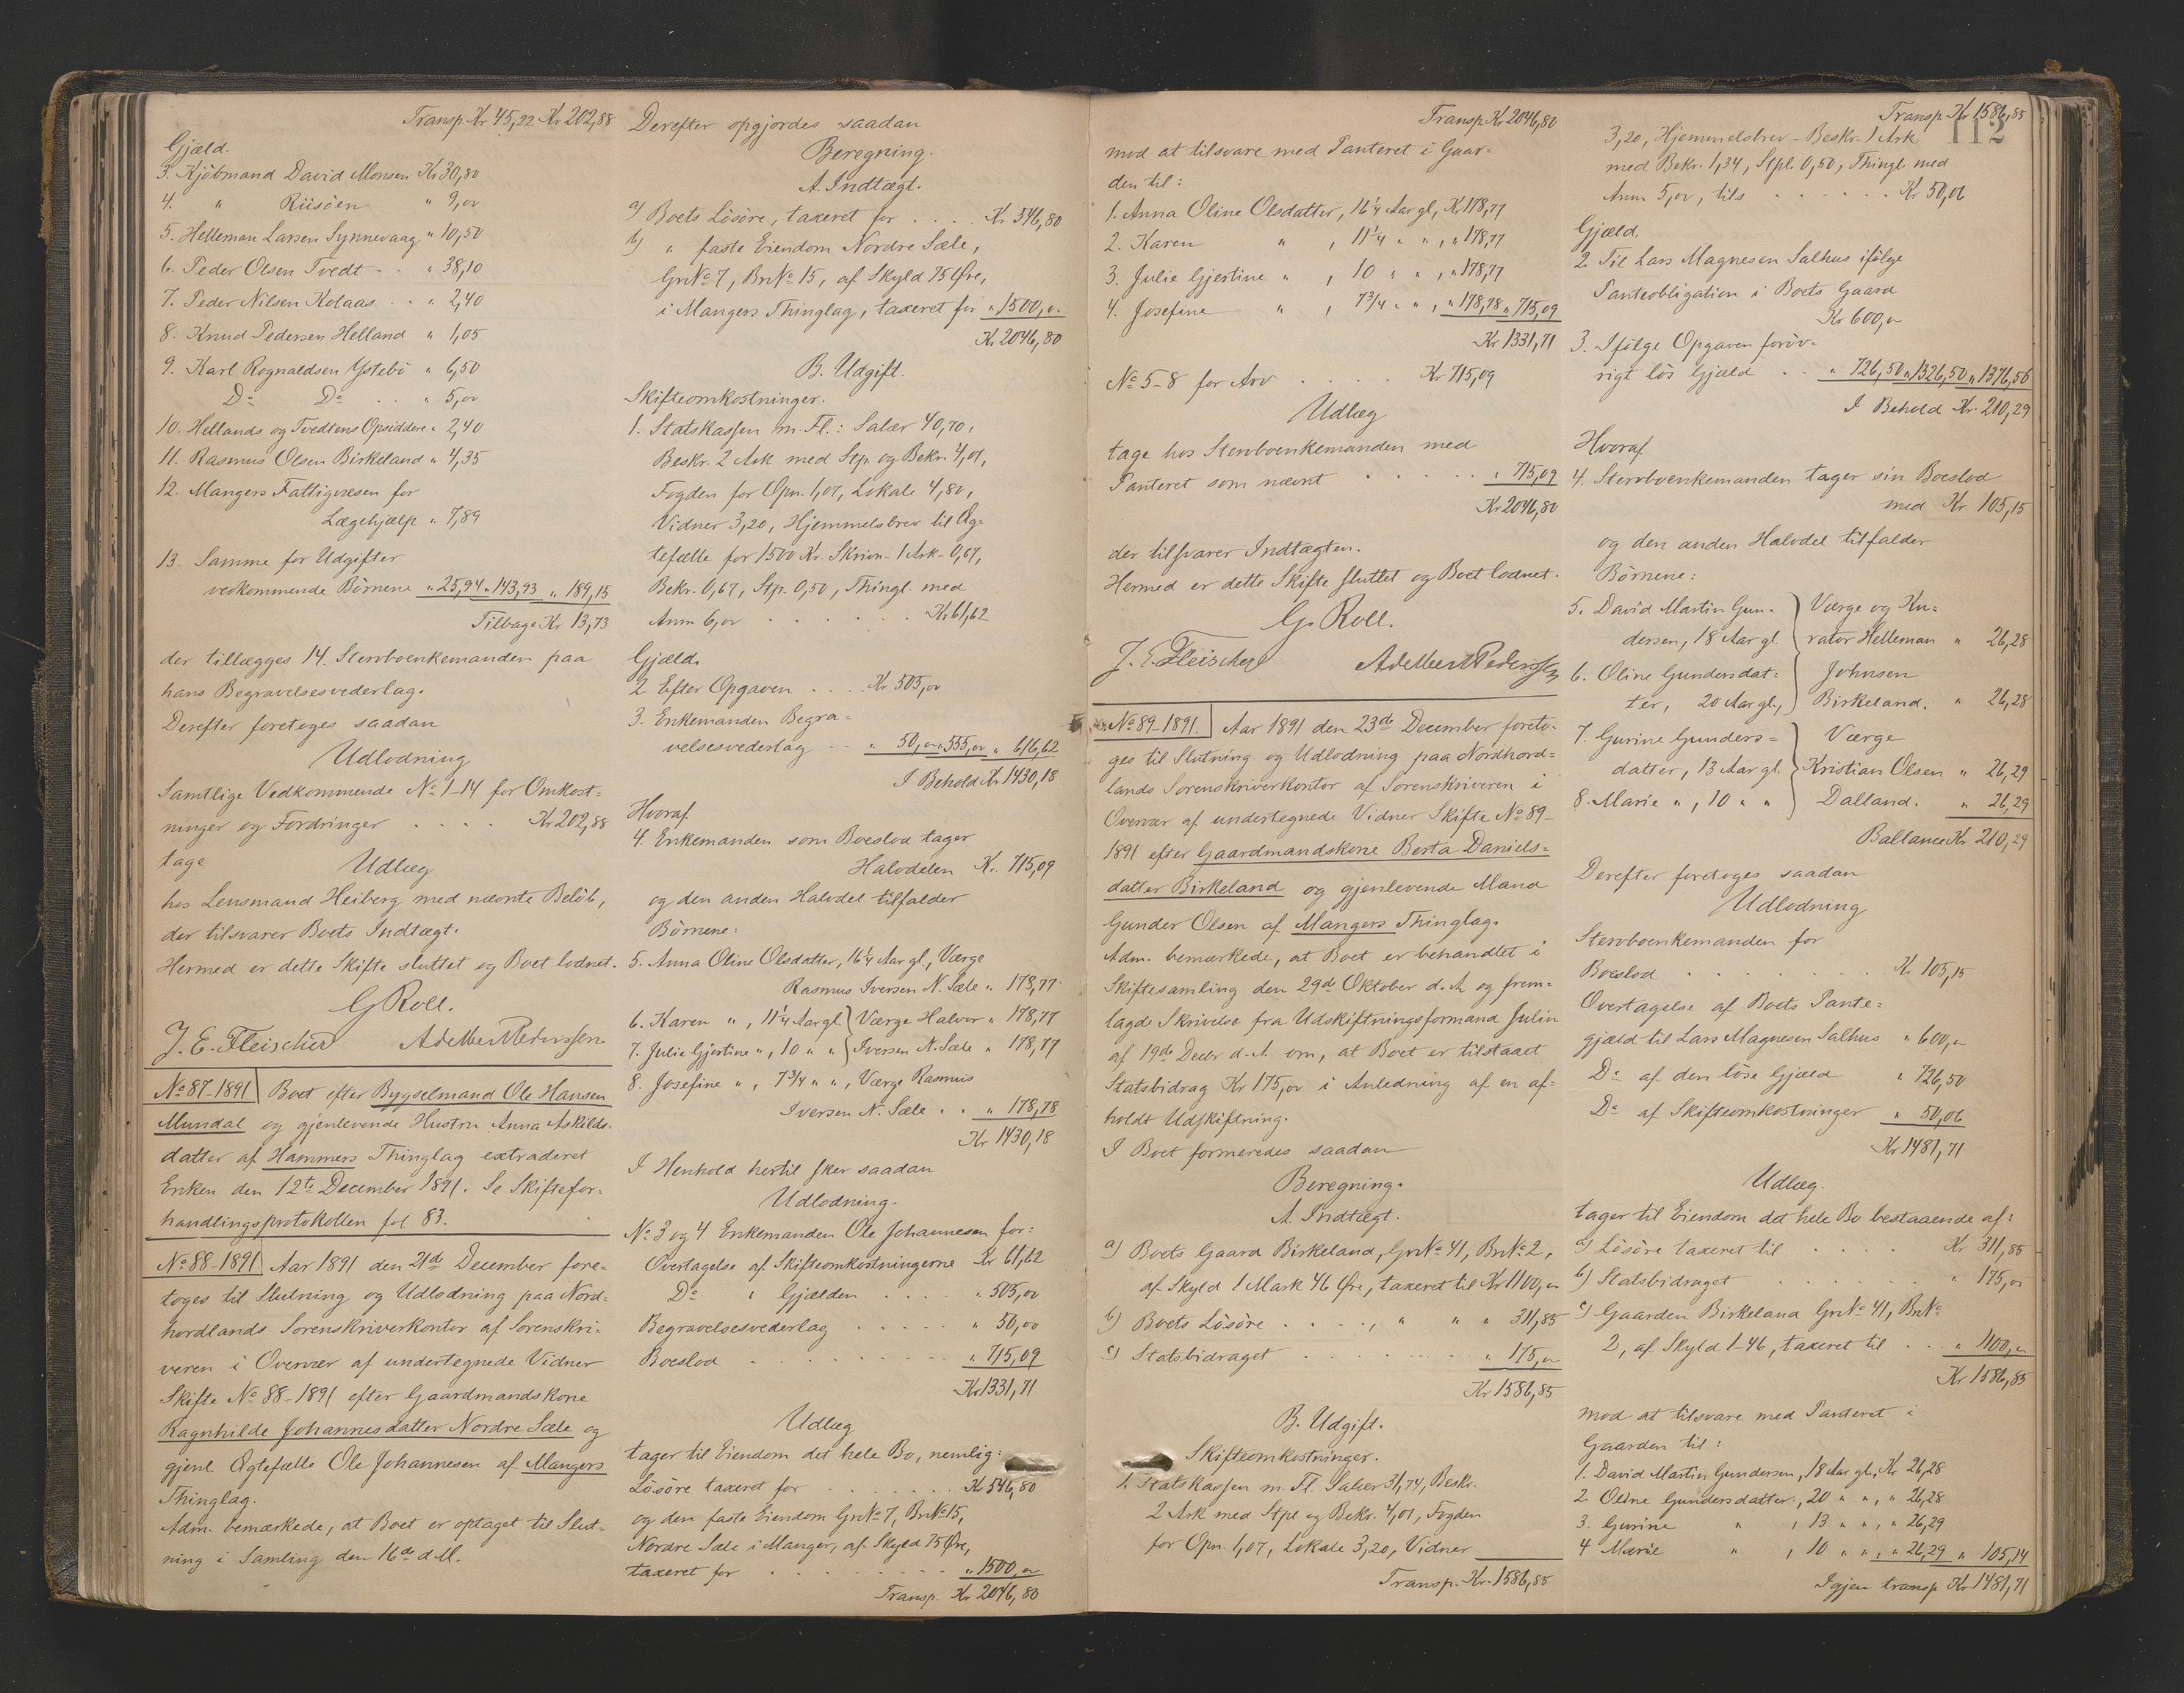 Transp. Kr 45,22 Kr 202,88
Gjæld.
3. Kjöbmand David Monsen Kr 30,80
4. " Riisöen " 9,00
5. Helleman Larsen Synnevaag " 10,50
6. Peder Olsen Tvedt . . " 38,10
7. Peder Nilsen Kolaas . . " 2,40
8. Knud Pedersen Helland " 1,05
9. Karl Rognaldsen Ystebö " 6,50
Do Do . . " 5,00
10. Hellands og Tvedtens Opsiddere " 2,40
11. Rasmus Olsen Birkeland " 4,35
12. Mangers Fattigvæsen for
Lægehjælp " 7,89
13. Samme for Udgifter
vedkommende Börnene " 25,94 " 143,93 " 189,15
Tilbage Kr 13,73
der tillægges 14. Stervboenkemanden paa
hans Begravelsesvederlag.
Derefter foretoges saadan
Udlodning
Samtlige Vedkommende No 1-14 for Omkost-
ninger og Fordringer . . . . Kr 202,88
tage
Udlæg
hos Lensmand Heiberg med nævnte Belöb,
der tilsvarer Boets Indtægt.
Hermed er dette Skifte sluttet og Boet lodnet.
G Roll.
J. E. Fleischer Adelbert Pederssen
No 87-1891 Boet efter Bygselmand Ole Hansen
Mundal og gjenlevende Hustru Anna Askilds-
datter af Hammers Thinglag extraderet
Enken den 12te December 1891. Se Skiftefor-
handlingsprotokollen fol 83.
No 88-1891 Aar 1891 den 21de December fore-
toges til Slutning og Udlodning paa Nord-
hordlands Sorenskriverkontor af Sorenskri-
veren i Overvær af undertegnede Vidner
Skifte No 88-1891 efter Gaardmandskone
Ragnhilde Johannesdatter Nordre Sæle og
gjenl Ægtefælle Ole Johannesen af Mangers
Thinglag.
Adm. bemærkede, at Boet er optaget til Slut-
ning i Samling den 16de d.M.
Derefter opgjordes saadan
Beregning.
A. Indtægt.
a) Boets Lösöre, taxeret for . . . . Kr 546,80
b) " faste Eiendom Nordre Sæle,
Gr.No 7, Br.No 15, af Skyld 75 Öre,
i Mangers Thinglag, taxeret for " 1500,00
Kr 2046,80
B. Udgift.
Skifteomkostninger.
1. Statskassen m. Fl.: Salær 40,70,
Beskr. 2 Ark med Stp. og Bekr. 4,01,
Fogden for Opn. 1,07, Lokale 4,80,
Vidner 3,20, Hjemmelsbrev til Æg-
tefælle for 1500 Kr. Skrivn. 1 Ark 0,67,
Bekr. 0,67, Stp. 0,50, Thingl. med
Anm 6,00 . . . . . . Kr 61,62
Gjæld.
2 Efter Opgaven . . . . Kr 505,00
3. Enkemanden Begra-
velsesvederlag . . " 50,00 " 555,00 " 616,62
I Behold Kr 1430,18
Hvoraf
4. Enkemanden som Boeslod tager
Halvdelen Kr. 715,09
og den anden Halvdel tilfalder
Börnene:
5. Anna Oline Olsdatter, 16 1/4 Aar gl., Værge
Rasmus Iversen N. Sæle " 178,77
6. Karen " , 11 1/4 Aar gl Værge Halvor " 178,77
7. Julie Gjertine " , 10 " " Iversen N. Sæle " 178,77
8. Josefine " , 7 3/4 " " , Værge Rasmus
Iversen N. Sæle . . " 178,78
Kr 1430,18
I Henhold hertil sker saadan
Udlodning.
No 3 og 4 Enkemanden Ole Johannesen for:
Overtagelse af Skifteomkostningerne Kr 61,62
Do " Gjælden . . . . " 505,00
Begravelsesvederlag . . . . . " 50,00
Boeslod . . . . . . . . " 715,09
Kr 1331,71
Udlæg
tager til Eiendom det hele Bo, nemlig:
Lösöre taxeret for . . . . . . Kr 546,80
og den faste Eiendom Gr.No 7, Br.No 15,
Nordre Sæle i Manger, af Skyld 75 Öre,
taxeret for . . . . . . . " 1500,00
Transp. Kr 2046,80
Transp. Kr 2046,80
mod at tilsvare med Panteret i Gaar-
den til:
1. Anna Oline Olsdatter, 16 1/4 Aar gl, Kr 178,77
2. Karen " , 11 1/4 " " , " 178,77
3. Julie Gjertine " , 10 " " , " 178,77
4. Josefine " , 7 3/4 " " , " 178,78 " 715,09
Kr 1331,71
No 5-8 for Arv . . . . . Kr 715,09
Udlæg
tage hos Stervboenkemanden med
Panteret som nævnt . . . . . " 715,09
Kr 2046,80
der tilsvarer Indtægten.
Hermed er dette Skifte sluttet og Boet lodnet.
G. Roll.
J. E. Fleischer Adelbert Pederssen
No 89-1891. Aar 1891 den 23de December foreto-
ges til Slutning og Udlodning paa Nordhord-
lands Sorenskriverkontor af Sorenskriveren i
Overvær af undertegnede Vidner Skifte No 89-
1891 efter Gaardmandskone Berta Daniels-
datter Birkeland og gjenlevende Mand
Gunder Olsen af Mangers Thinglag.
Adm. bemærkede, at Boet er behandlet i
Skiftesamling den 29de Oktober d. A. og frem-
lagde Skrivelse fra Udskiftningsformand Julin
af 19de Decbr d. A. om, at Boet er tilstaaet
Statsbidrag Kr 175,00 i Anledning af en af-
holdt Udskiftning.
I Boet formeredes saadan
Beregning.
A. Indtægt.
a) Boets Gaard Birkeland, Gr.No 41, Br.No 2,
af Skyld 1 Mark 46 Öre, taxeret til Kr 1100,00
b) Boets Lösöre . . . . , " " " 311,85
c) Statsbidraget . . . . . . . . " 175,00
Kr 1586,85
B. Udgift.
Skifteomkostninger.
1. Statskassen m. Fl. Salær 31,74, Beskr.
2 Ark med Stpl og Bekr. 4,01, Fogden
for Opn. 1,07, Lokale 3,20, Vidner
Transp. Kr. 1586,85
112
Transp. Kr 1586,85
3,20, Hjemmelsbrev - Beskr. 1 Ark
med Bekr. 1,34, Stpl. 0,50, Thingl. med
Anm 5,00, tils . . . . . . Kr 50,06
Gjæld.
2. Til Lars Magnesen Salhus ifölge
Panteobligation i Boets Gaard
Kr 600,00
3. Ifölge Opgaven foröv-
rigt lös Gjæld . . " 726,50 " 1326,50 " 1376,56
I Behold Kr. 210,29
Hvoraf
4. Stervboenkemanden tager sin Boeslod
med Kr 105,15
og den anden Halvdel tilfalder
Börnene:
5. David Martin Gun- Værge og Ku-
dersen, 18 Aar gl. rator Helleman " 26,28
6. Oline Gundersdat- Johnsen
ter, 20 Aar gl., Birkeland. " 26,28
7. Gurine Gunders- Værge
datter, 13 Aar gl. Kristian Olsen " 26,29
8. Marie " , 10 " " Dalland. " 26,29
Ballance Kr 210,29
Derefter foretoges saadan
Udlodning
Stervboenkemanden for
Boeslod . . . . . . . . Kr 105,15
Overtagelse af Boets Pante-
gjæld til Lars Magnesen Salhus " 600,00
Do af den löse Gjæld " 726,50
Do af Skifteomkostninger " 50,06
Kr 1481,71
Udlæg.
tager til Eiendom det hele Bo bestaaende af:
a) Lösöre taxeret til . . . . Kr 311,85
b) Statsbidraget . . . . . . " 175,00
c) Gaarden Birkeland Gr.No 41, Br.No
2, af Skyld 1-46, taxeret til . . . " 1100,00
Kr 1586,85
mod at tilsvare med Panteret i
Gaarden til:
1. David Martin Gundersen, 18 Aar gl., Kr 26,28
2 Oline Gundersdatter, 20 " " , " 26,28
3. Gurine " , 13 " " , " 26,29
4 Marie " , 10 " " , " 26,29 " 105,14
Igjen transp Kr 1481,71